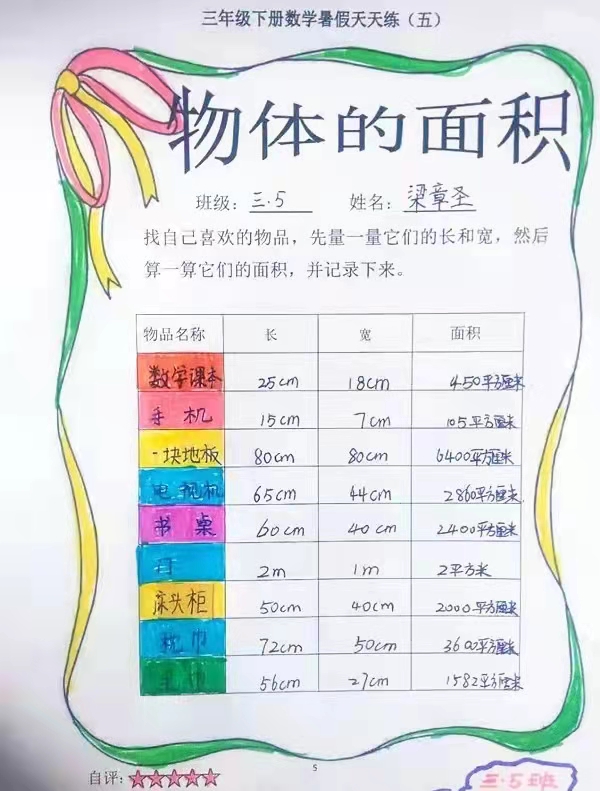 三年级下册数学暑假天天练（五）
物体的面积
班级：三.5 姓名：梁章圣
找自己喜欢的物品，先量一量它们的长和宽，然后
算一算它们的面积，并记录下来。
物品名称 长 宽 面积
数学课本 25cm 18cm 450平方厘米
手机 15cm 7cm 105平方厘米
一块地板 80cm 80cm 6400平方厘米
电视机 65cm 44cm 2860平方厘米
书桌 60cm 40cm 2400平方厘米
2m 1m 2平方米
床头柜 50cm 40cm 2000平方厘米
枕巾 72cm 50cm 3600平方厘米
56cm 27cm 1582平方厘米
5
自评：
三.5班